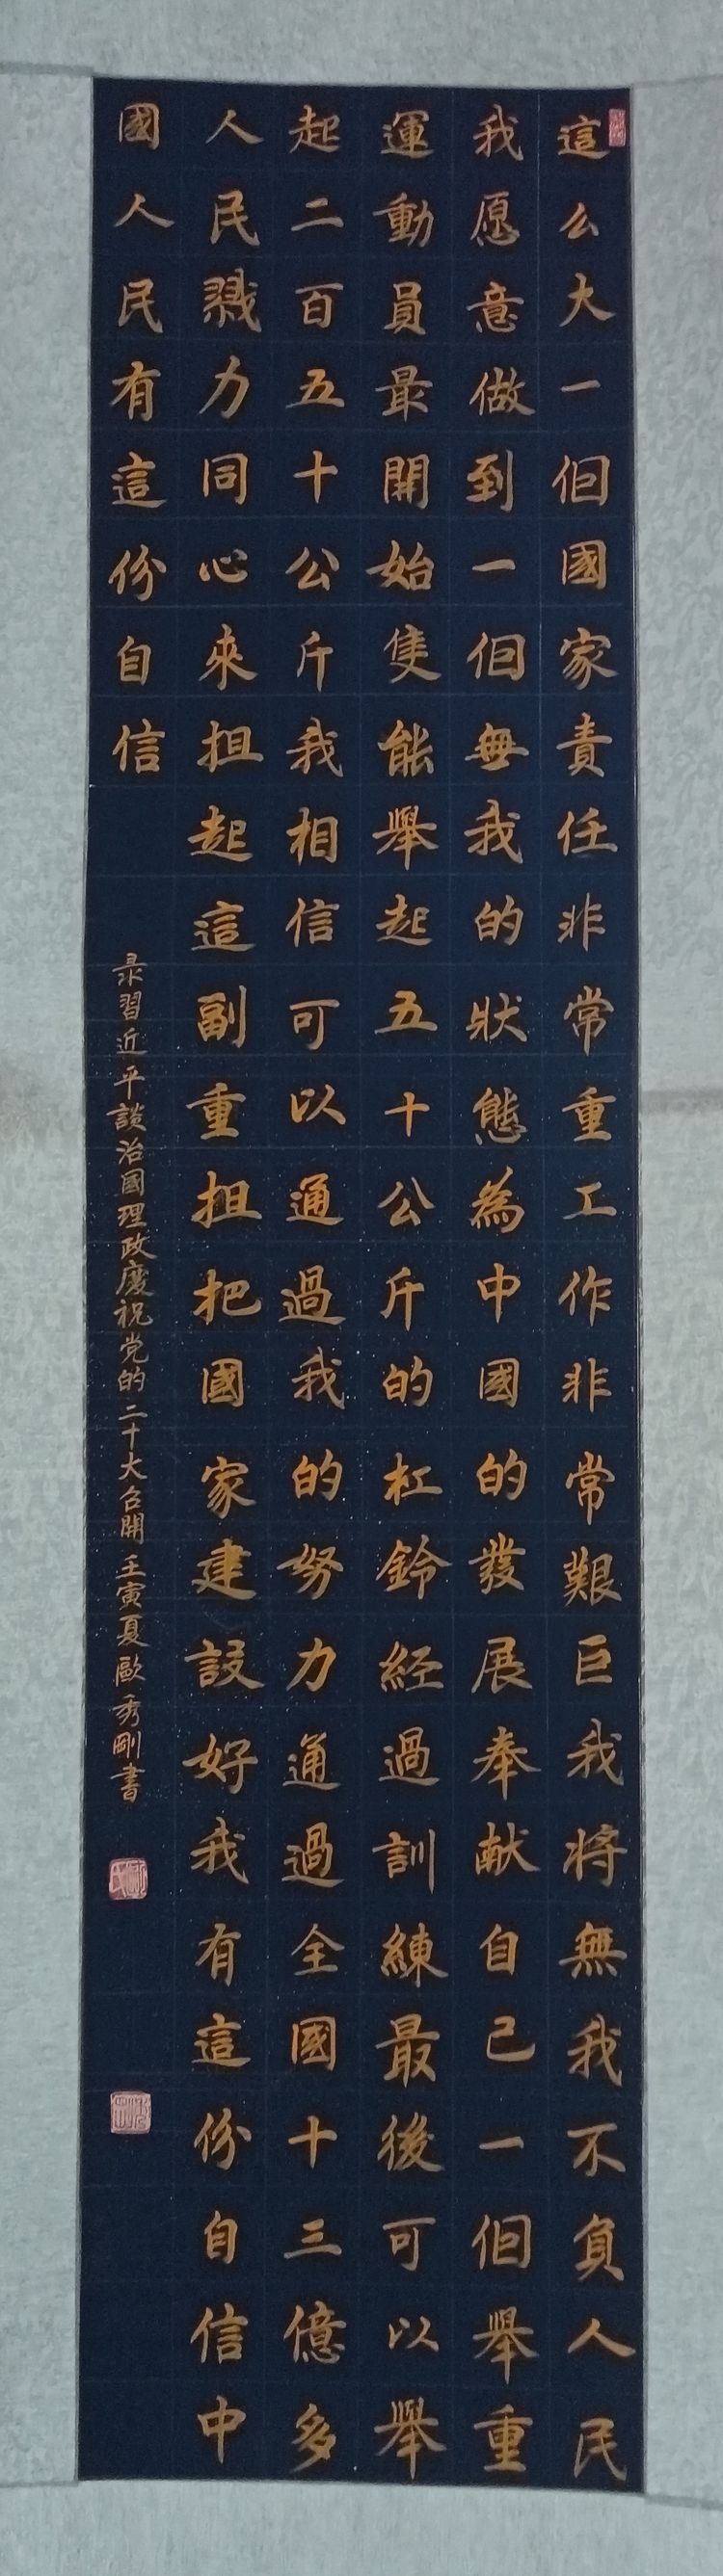 這么大一個國家責任非常重工作非常艱巨我将無我不負人民
我愿意做到一個無我的狀態為中國的發展奉献自己一個舉重
運動員最開始隻能舉起五十公斤的杠鈴經過訓練最後可以舉
起二百五十公斤我相信可以通過我的努力通過全國十三億多
人民戮力同心來担起這副重担把國家建設好我有這份自信中
國人民有這份自信
录習近平談治國理政慶祝党的二十大召開 壬寅夏歐秀剛書